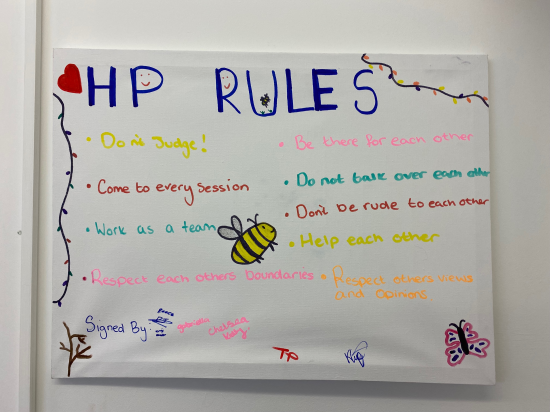 HP RULES
• Don't Judge!
• Come to every session
• Work as a team
• Respect each others boundaries
• Be there for each other
• Do not talk over each other
• Don't be rude to each other
• Help each other
• Respect others views
and opinions
Signed By:
chelsea